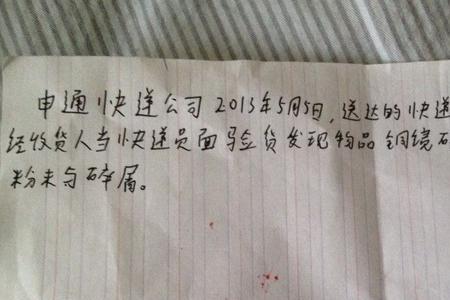 申通快递公司2013年5月5日,送达的快递
经收货人当快递员面验货发现物品铜镜石
粉末与碎屑。